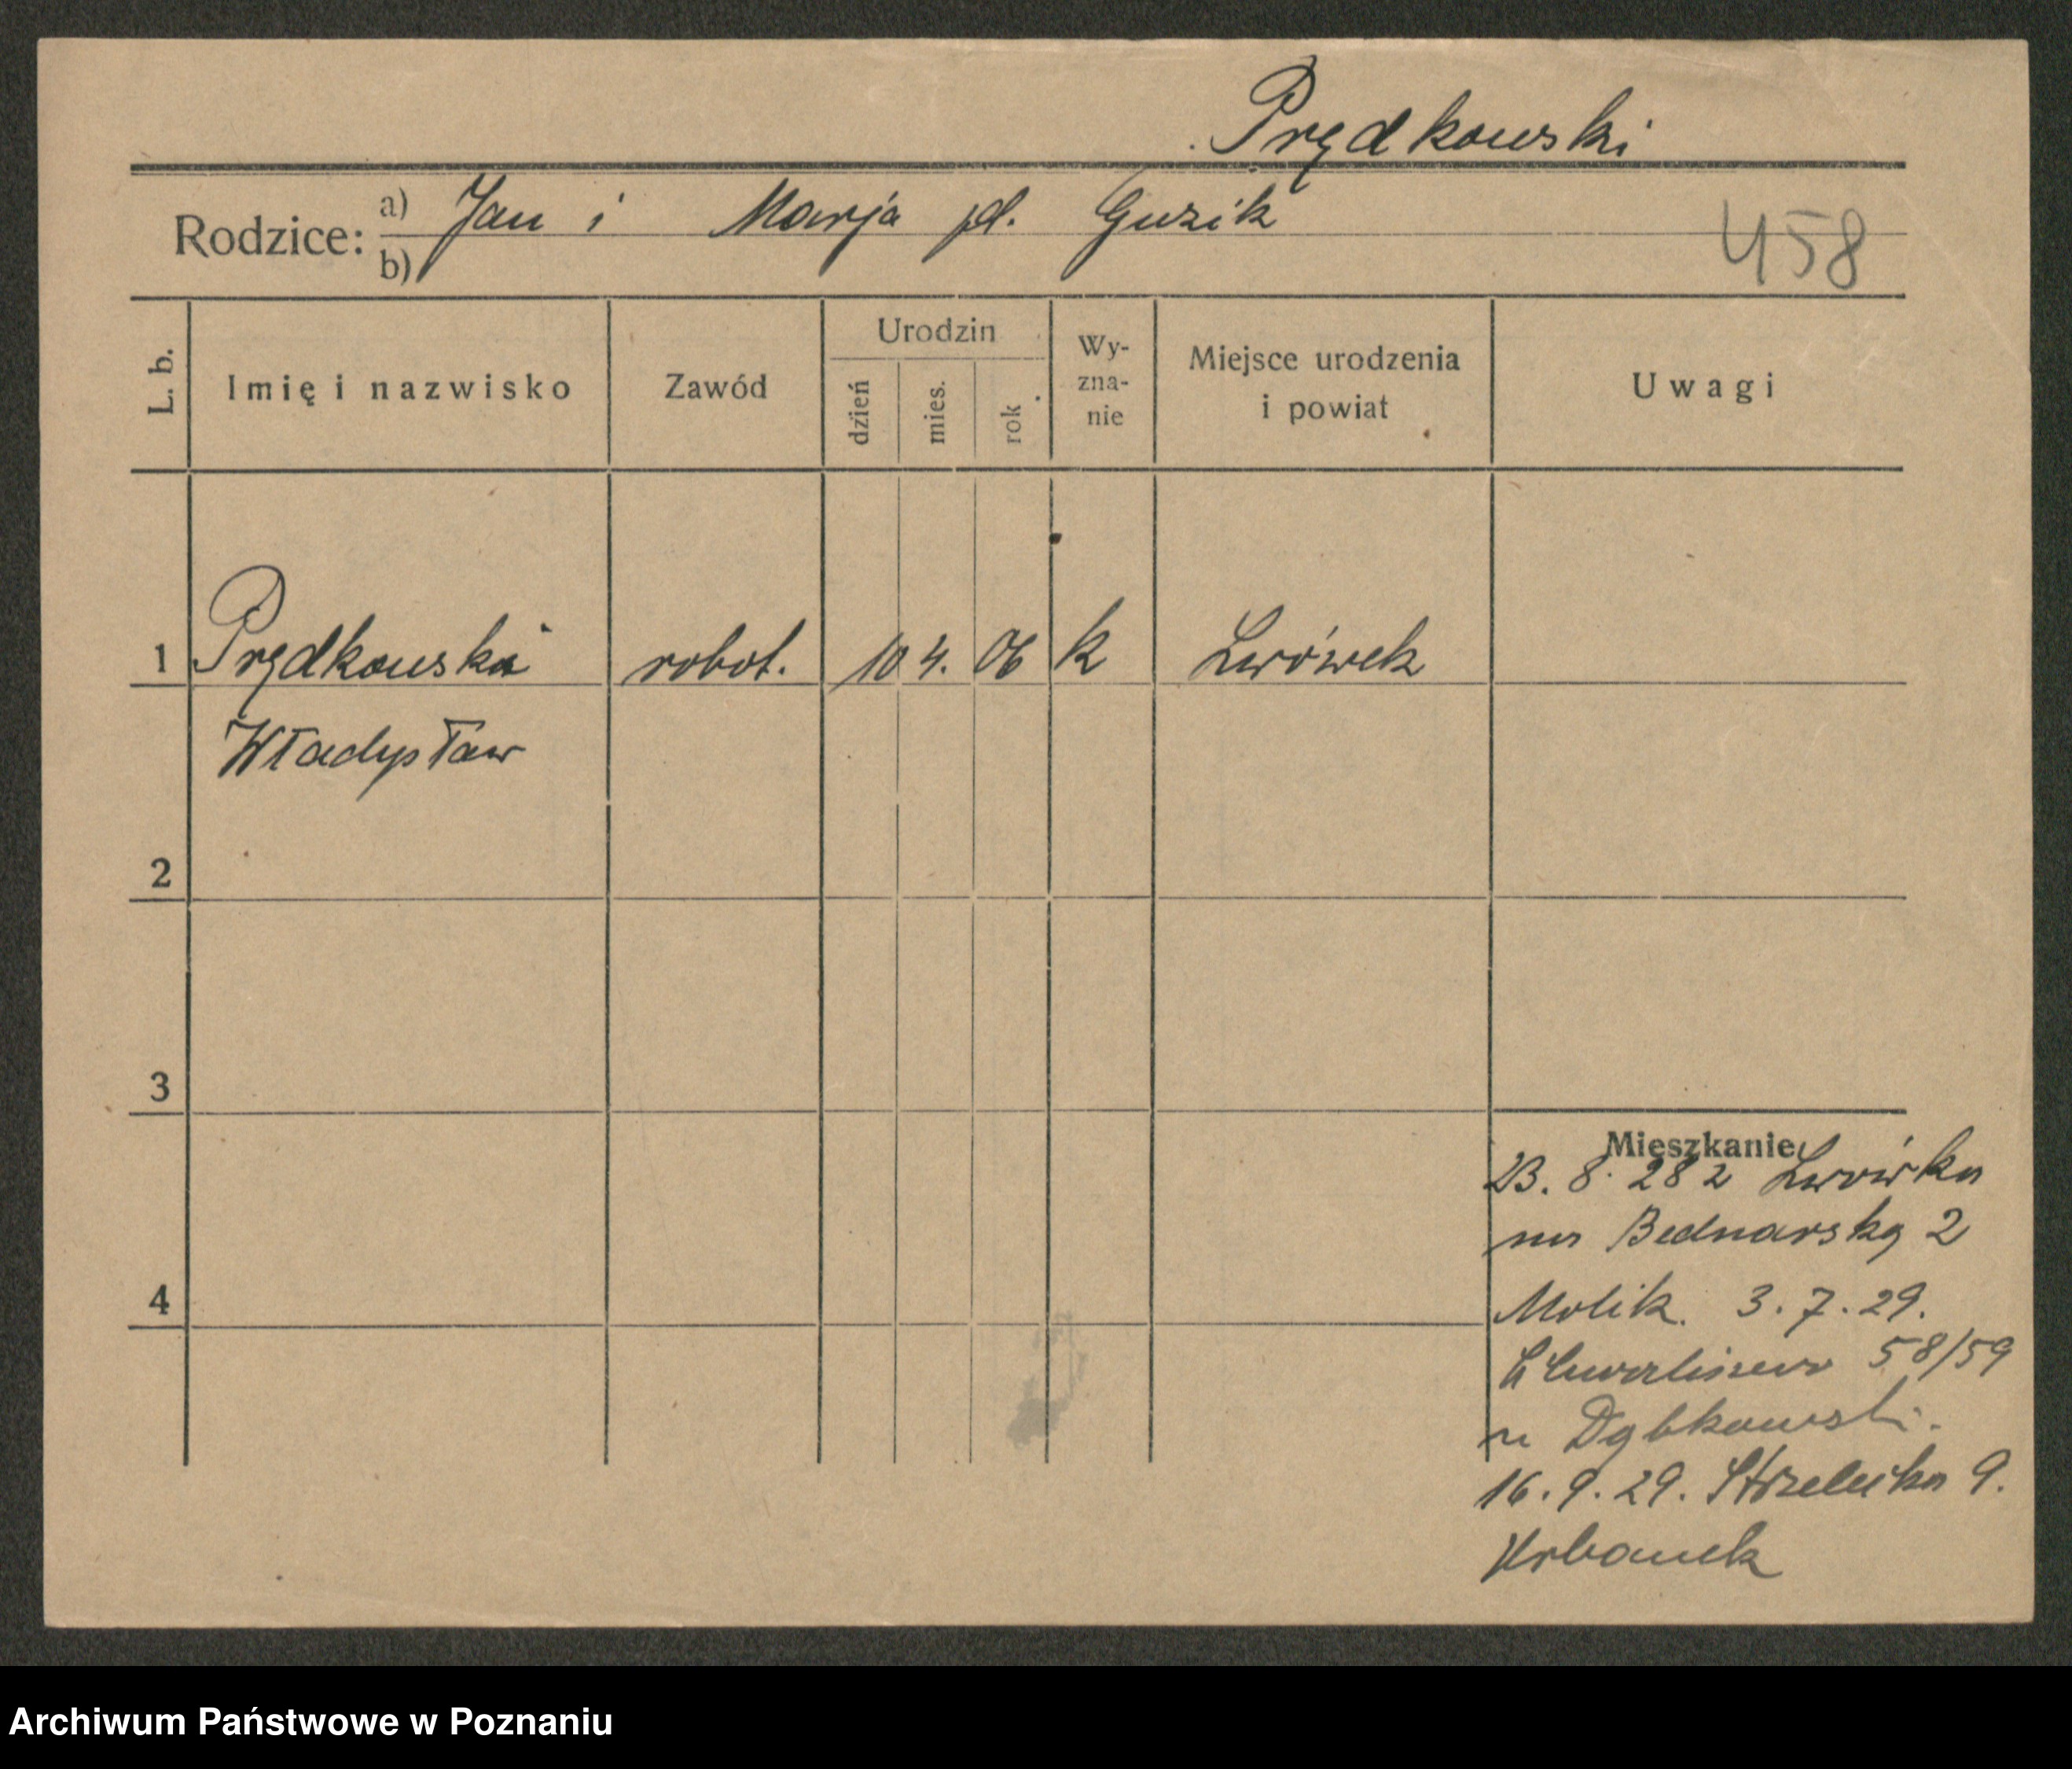 Prędkowski
Rodzice: a) Jan i Marja pd. Guzik
b)
458
L. b.
Imię i nazwisko
Zawód
Urodzin
dzień
mies.
rok
Wy-
zna-
nie
Miejsce urodzenia
i powiat
Uwagi
1 Prędkowski robot. 10 4. 06 k Lwówek
Władysław
2
3
4
Mieszkanie
23. 8. 28 z Lwówka
na Bednarską 2
Molik. 3. 7. 29.
Chwaliszewo 58/59
u Dąbkowski.
16. 9. 29. Strzelecka 9.
Urbanek
Archiwum Państwowe w Poznaniu